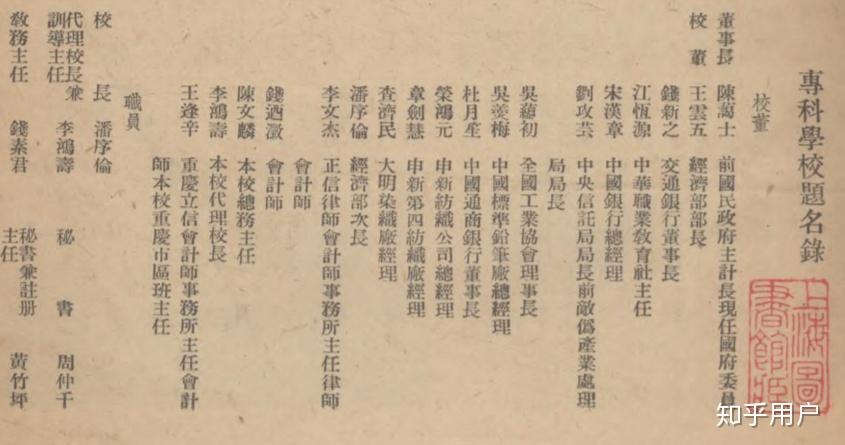 專科學校題名錄
校董
董事長 陳藹士 前國民政府主計長現任國府委員
校董 王雲五 經濟部部長
錢新之 交通銀行董事長
江恆源 中華職業教育社主任
宋漢章 中國銀行總經理
劉攻芸 中央信託局局長前敵僞產業處理
局局長
吳蘊初 全國工業協會理事長
吳羹梅 中國標準鉛筆廠總經理
杜月笙 中國通商銀行董事長
榮鴻元 申新紡織公司總經理
章劍慧 申新第四紡織廠經理
查濟民 大明染織廠經理
潘序倫 經濟部次長
李文杰 正信律師會計師事務所主任律師
會計師
錢迺澂 會計師
陳文麟 本校總務主任
李鴻壽 本校代理校長
王逢辛 重慶立信會計師事務所主任會計
師本校重慶市區班主任
職員
校長 潘序倫
代理校長兼訓導主任 李鴻壽 秘書 周仲千
教務主任 錢素君 秘書兼註册主任 黃竹坪
上海圖書館
知乎用户